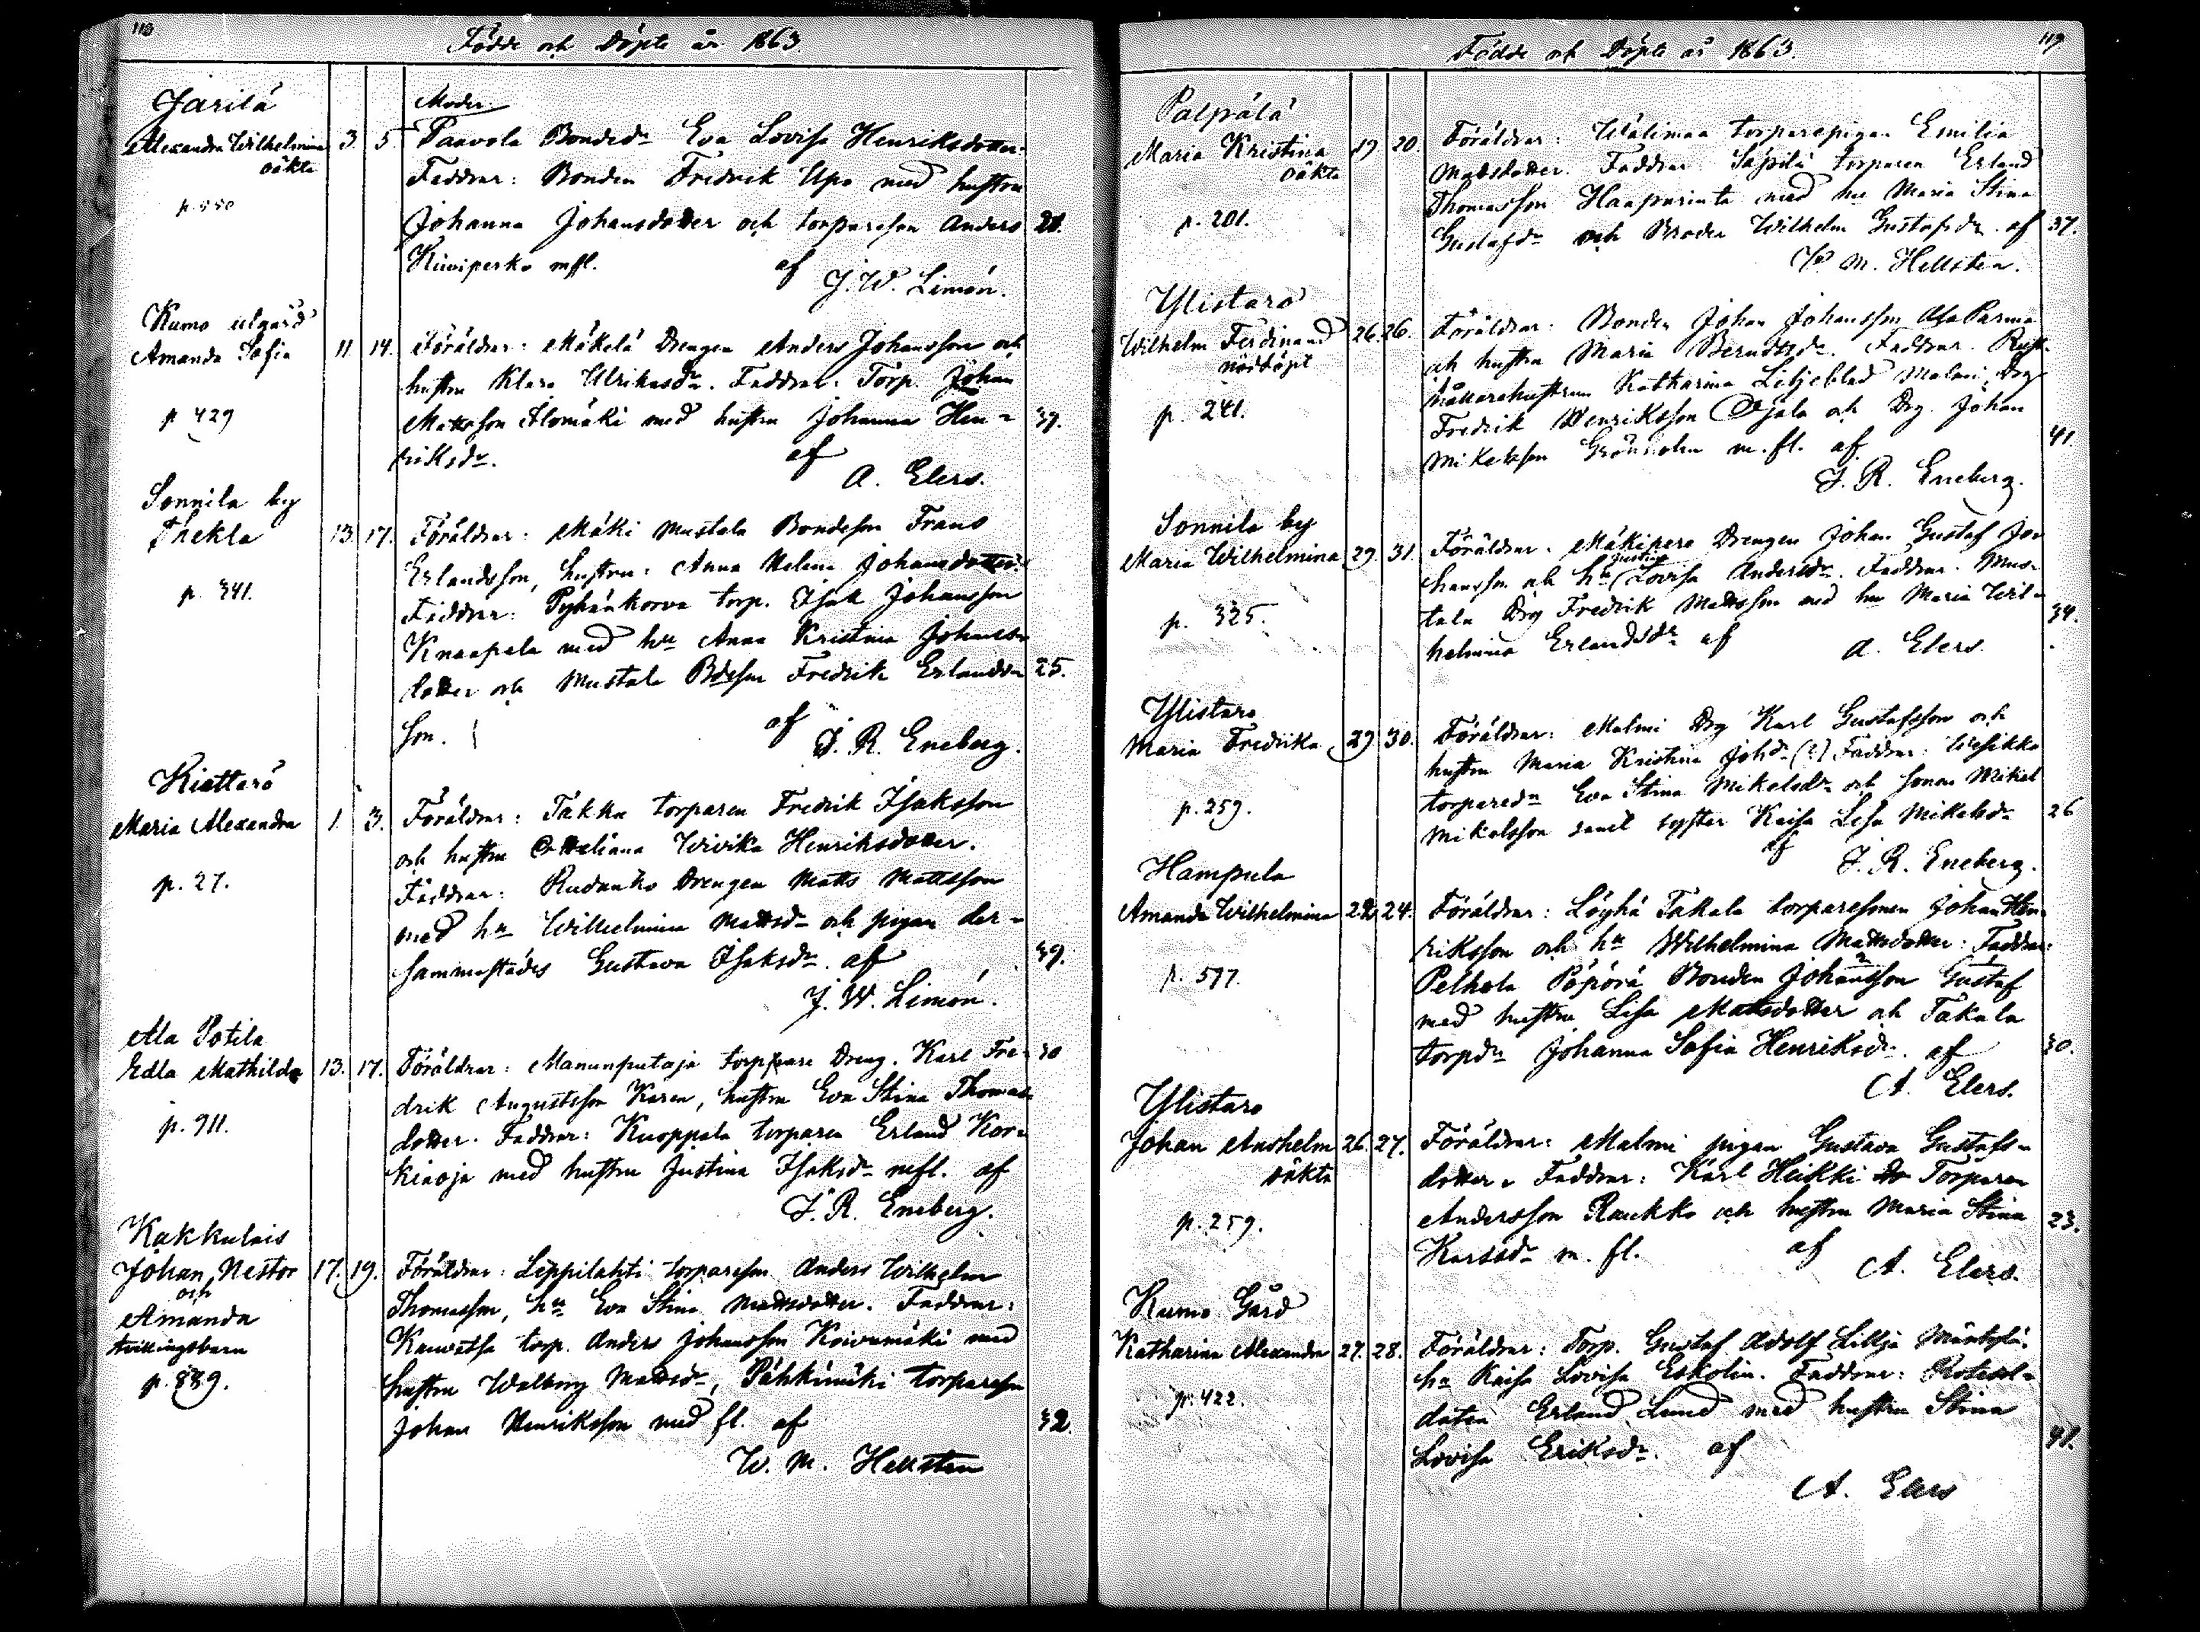 118
Födde och Döpte år 1863.
Jarilä
Alexandra Wilhelmina 3. 5
oäkta
p. 550
Moder
Paavola Bonded:r Eva Lovisa Henriksdotter.
Faddrar: Bonden Fredrik Upo med hustru
Johanna Johansdotter och torpareson Anders 21.
Kiviperko mfl. af
J. W. Limón.
Kumo utgård
Amanda Sofia 11. 14.
p 429
Föräldrar: Mäkelä Drengen Anders Johansson och
hustru Klara Ulriksd:r. Faddrar: Torp. Johan
Mattsson Alomäki med hustru Johanna Hen= 39.
riksd:r. af
A. Elers.
Sonnila by
Thekla 13. 17.
p. 341.
Föräldrar: Mäki Mustala Bondeson Frans
Erlandsson, hustru: Anna Helena Johansdotter.
Faddrar: Pyhänkorva torp. Isak Johansson
Knaapala med h:u Anna Kristina Johans=
dotter och Mustala Bdeson Fredrik Erlands= 25.
son. af
F. R. Eneberg.
Kiettarö
Maria Alexandra 1. 3.
p. 27.
Föräldrar: Takku torparen Fredrik Isaksson
och hustru Ottiliana Wivika Henriksdotter.
Faddrar: Rudanko Drengen Matts Mattsson
med h:u Wilhelmina Mattsd:r och pigan der=
sammastädes Gustava Isaksd:r. af 39.
J. W. Limón.
Ala Potila
Edla Mathilda 13. 17.
p. 911.
Föräldrar: Manunputaja torppare Dreng. Karl Fre= 30
drik Augustsson Karen, hustru Eva Stina Thomas=
dotter. Faddrar: Kuoppala torparen Erland Kor=
kiaoja med hustru Justina Isaksd:r mfl. af
F. R. Eneberg.
Kakkulais
Johan Nestor 17. 19.
och
Amanda
tvillingsbarn
p. 889.
Föräldrar: Leppilahti torpareson Anders Wilhelm
Thomasson, h:u Eva Stina Mattsdotter. Faddrar:
Kauvatsa torp. Anders Johansson Koivumäki med
hustru Walborg Mattsd:r, Pähkimäki torpareson
Johan Henriksson med fl. af 32.
W. M. Hellsten
119
Födde och Döpte år 1863.
Palpälä
Maria Kristina 19 20.
oäkta
p. 201.
Föräldrar: Wälimaa torparepigan Emilia
Mattsdotter. Faddrar Säpilä torparen Erland
Thomasson Haapurinta med hu Maria Stina
Gustafsd:r och Broder Wilhelm Gustafsd:r. af 37.
W M. Hellsten.
Ylistaro
Wilhelm Ferdinand 26. 26.
nöddöpt
p. 241.
Föräldrar: Bonden Johan Johansson Ala Parma
och hustru Maria Berndtsd:r. Faddrar. Rust=
hållarehustrun Katharina Liljeblad Malmi, Drg
Fredrik Henriksson Ojala och Drg. Johan
Mikelsson Grönholm m. fl. af 41.
F. R. Eneberg.
Sonnila by
Maria Wilhelmina 29. 31.
p. 325.
Föräldrar. Mäkipere Drengen Johan Gustaf Jo=
hansson och h:u Justina Lovisa Andersd:r. Faddrar. Mus=
tala Drg Fredrik Mattsson med hu Maria Wil=
helmina Erlandsd:r af 34.
A. Elers.
Ylistaro
Maria Fredrika 29 30.
p. 259.
Föräldrar: Malmi Drg Karl Gustafsson och
hustru Maria Kristina Johd:r (?) Faddrar: Wesikko
torpared:r Eva Stina Mikelsd:r och sonen Mikel
Mikelsson samt syster Kaisa Lisa Mikelsd:r 26
af
F. R. Eneberg.
Hampula
Amanda Wilhelmina 22 24.
p. 597.
Föräldrar: Löyhä Takala torparesonen Johan Hen=
riksson och h:u Wilhelmina Mattsdotter. Faddrar:
Pelhola Päpörä Bonden Johansson Gustaf
med hustru Lisa Mattsdotter och Takala
torpd:r Johanna Sofia Henriksd:r. af 30.
A. Elers.
Ylistaro
Johan Anshelm 26. 27.
oäkta
p. 259.
Föräldrar: Malmi pigan Gustava Gustafs=
dotter. Faddrar: Karl Heikki Torparen
Andersson Raukko och hustru Maria Stina 23.
Karlsd:r m. fl. af
A. Elers.
Kumo Gård
Katharina Alexandra 27. 28.
p. 422.
Föräldrar: Torp. Gustaf Adolf Lillja Mäntylä.
h:u Kaisa Lovisa Eskolin. Faddrar: Rotesol=
daten Erland Lund med hustru Stina
Lovisa Eriksd:r. af 41.
A. Elers